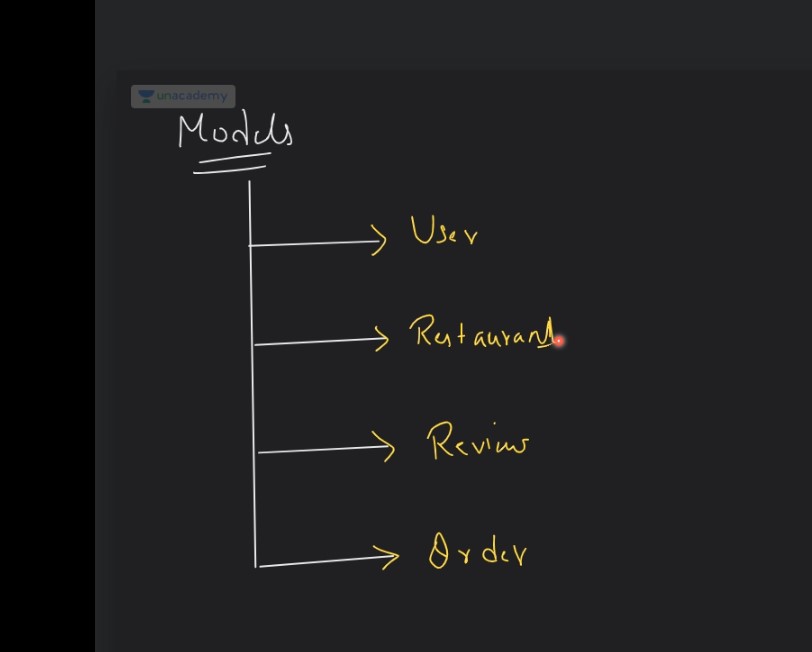 unacademy
Models
User
Restaurant
Review
Order